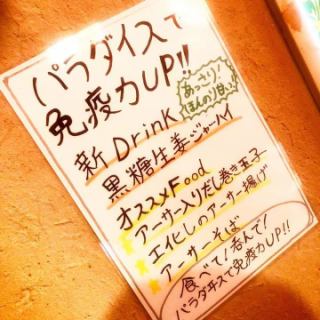 パラダイスで
免疫力UP!!
あっさり!
ほんのり甘い♪
新Drink
黒糖生姜ジャーハイ
オススメFood
アーサー入りだし巻き玉子
エイヒレのアーサー揚げ
アーサーそば
食べて!呑んで!
パラダイスで免疫力UP!!